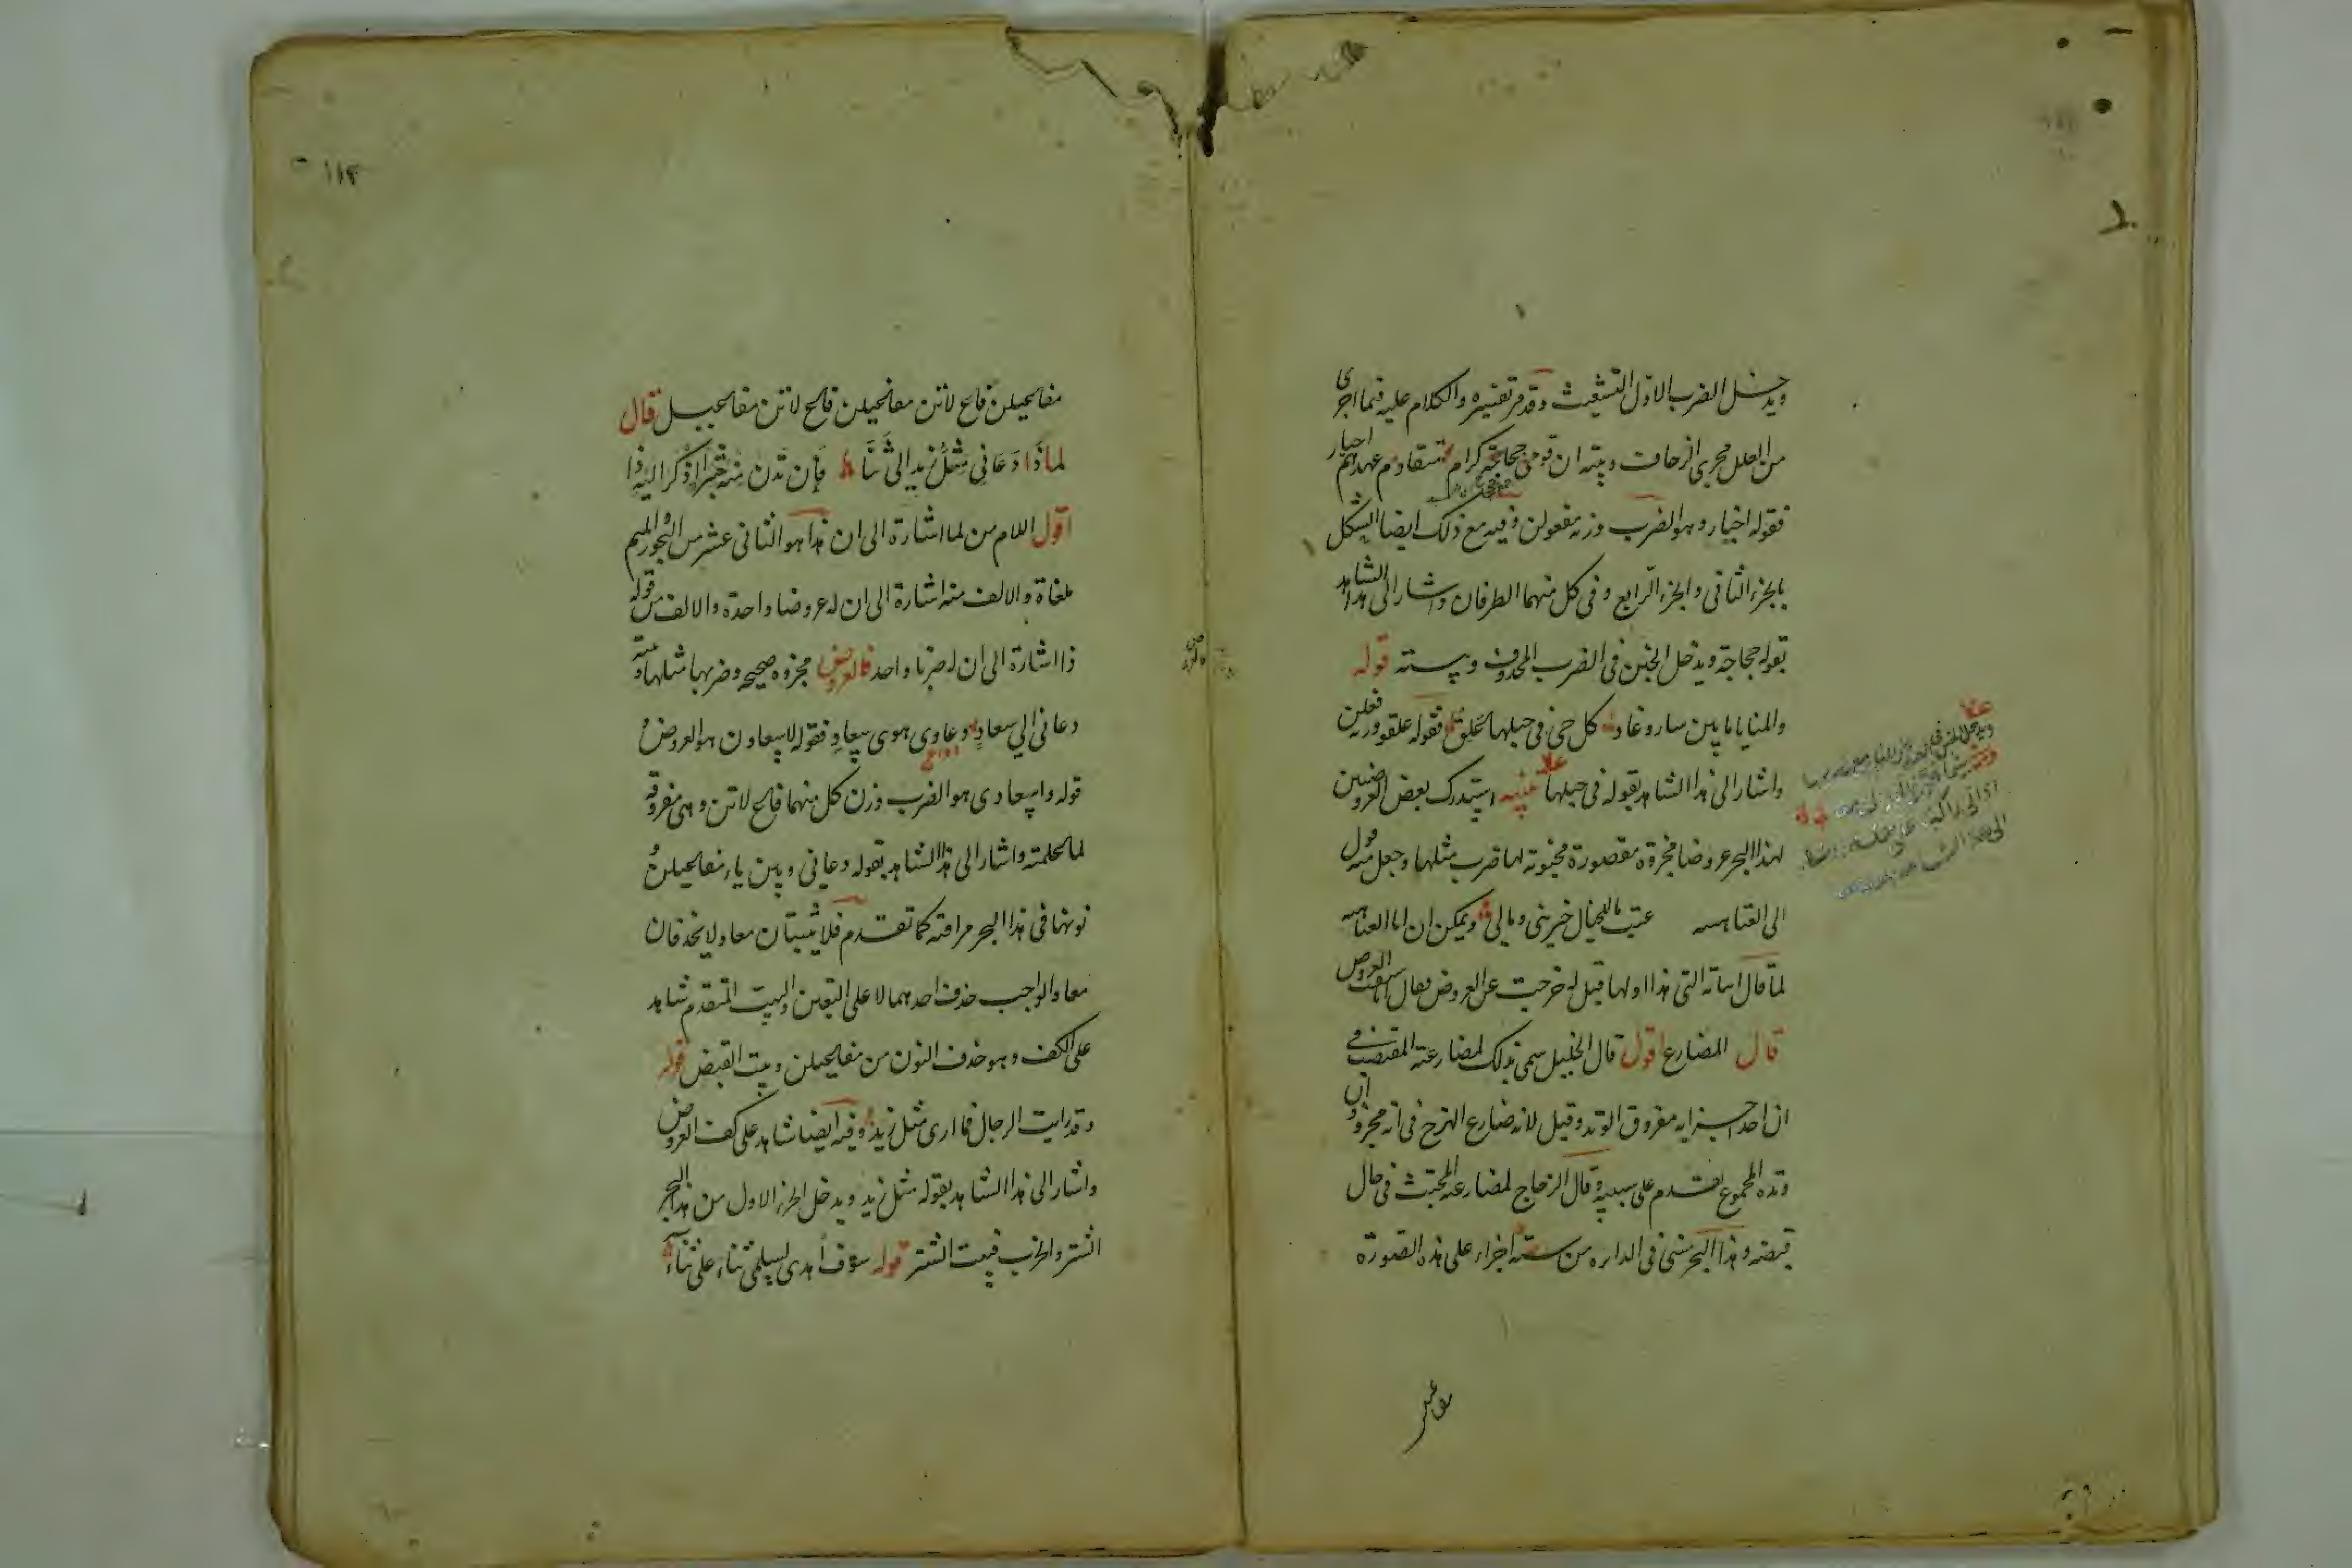 ويدخل الضرب الاول التشعيث وقد مر تفسيره والكلام عليه فيما اجرى
من العلل مجرى الزحاف وبيته ان قومى جحاجحة كرام متقادم عهدهم اخيار
فقوله اخيار وهو الضرب وزنه مفعولن وفيه مع ذلك ايضا الشكل
بالجزء الثانى والجزء الرابع وفى كل منهما الطرفان واشار الى هذا الشاهد
بقوله جحاجحة ويدخل الخبن فى الضرب المحذوف وبيته قوله
والمنايا ما بين سار وغاد كل حى فى حبلها علق فقوله علقو وزنه فعلن
واشار الى هذا الشاهد بقوله فى حبلها تنبيه استدرك بعض العروضيين
لهذا البحر عروضا مجزوة مقصورة مخبونة لها ضرب مثلها وجعل منه قول
ابى العتاهيه عتب ما للخيال خبرينى ومالى ويمكن ان ابا العتاهيه
لما قال ابياته التى هذا اولها قيل له خرجت عن العروض فقال انا سبقت العروض
قال المضارع اقول قال الخليل سمى بذلك لمضارعته المقتضب فى
ان احد جزايه مفروق الوتد وقيل لانه ضارع الهزج فى انه مجزو وان
وتده المجموع يقدم على سببيه وقال الزجاج لمضارعته المجتث فى حال
قبضه وهذا البحر مبنى فى الدايره من ستة اجزاء على هذه الصورة
١١٢
مفاعيلن فاع لاتن مفاعيلن مفاعيلن فاع لاتن مفاعيلن قال
لماذا دعانى مثل زيد الى ثنا فإن تدن منه شبرا ذكرا اليه ذا
اقول اللام من لما اشارة الى ان هذا هو الثانى عشر من البحور والميم
ملغاة والالف منه اشارة الى ان له عروضا واحدة والالف من قوله
ذا اشارة الى ان له ضربا واحد فالعروض مجزوه صحيحه وضربها مثلها وبيته
دعانى الى سعاد دواعى هوى سعاد فقوله لاسعادن هو العروض
قوله واسعادى هو الضرب وزن كل منهما فاع لاتن وهى مفروقه
لما علمته واشار الى هذا الشاهد بقوله دعانى وبين ياء مفاعيلن و
نونها فى هذا البحر مراقبه كما تقدم فلا يثبتان معا ولا يحذفان
معا والواجب حذف احدهما لا على التعين والبيت المتقدم شاهد
على الكف وهو حذف النون من مفاعيلن وبيت القبض قوله
وقد رايت الرجال فما ارى مثل زيد وفيه ايضا شاهد على كف العروض
واشار الى هذا الشاهد بقوله مثل زيد ويدخل الجزء الاول من هذا البحر
الشتر والخرب فبيت الشتر قوله سوف اهدى لسلمى ثناء على ثناء